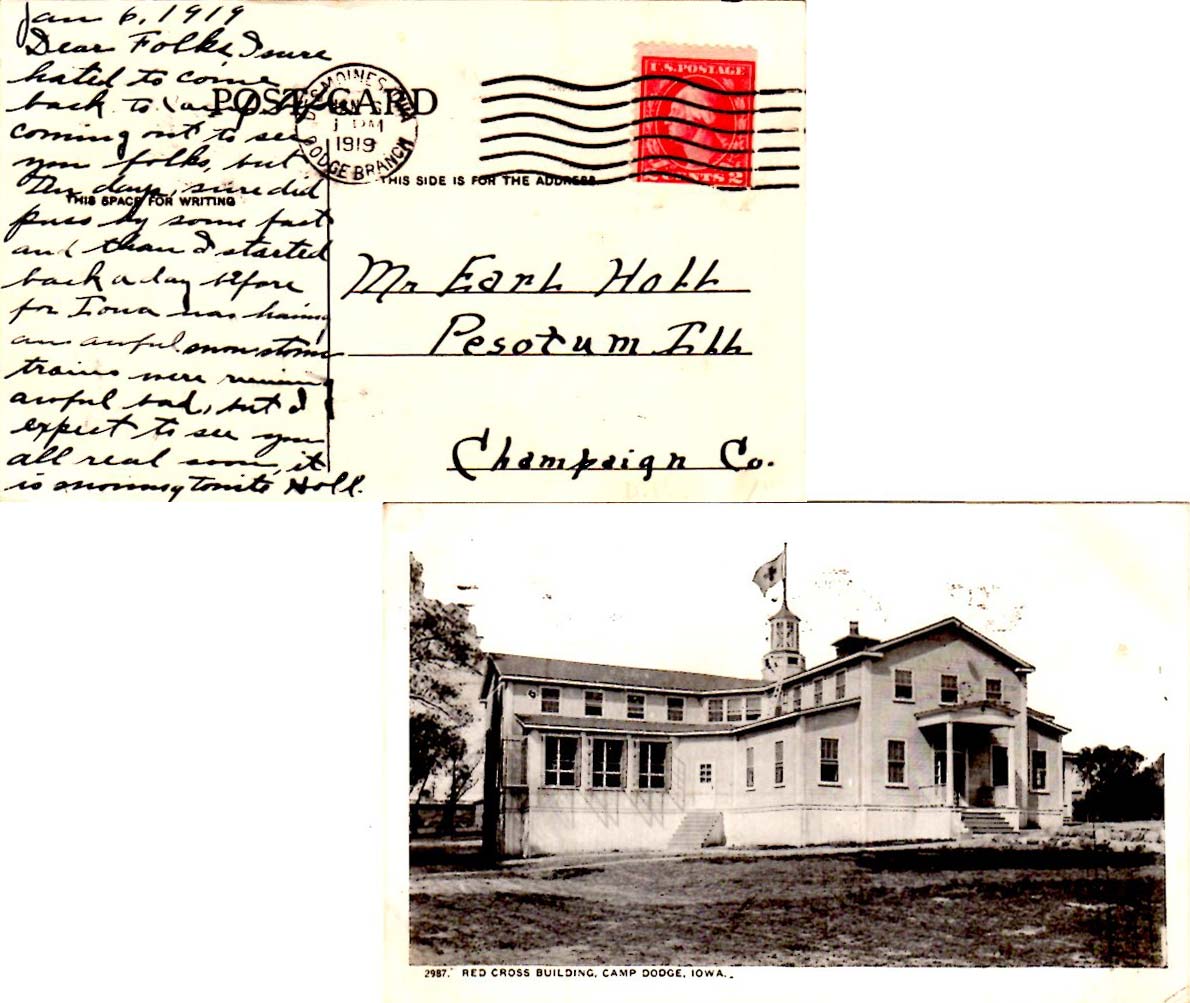 Jan 6, 1919
Dear Folks, I sure
hated to come
back to with out
coming out to see
you folks, but
The days, sure did
pass by some fast
and than I started
back a day before
for Iowa was having
an awful snow storm
trains were running
awful bad, but I
expect to see you
all real soon, it
is snowing tonite Holl.
POST CARD
DES MOINES, IOWA
JAN
1 PM
1919
DODGE BRANCH
U.S. POSTAGE
2 CENTS 2
THIS SIDE IS FOR THE ADDRESS
THIS SPACE FOR WRITING
Mr Earl Holl
Pesotum Ill
Champaign Co.
2987. RED CROSS BUILDING, CAMP DODGE, IOWA.